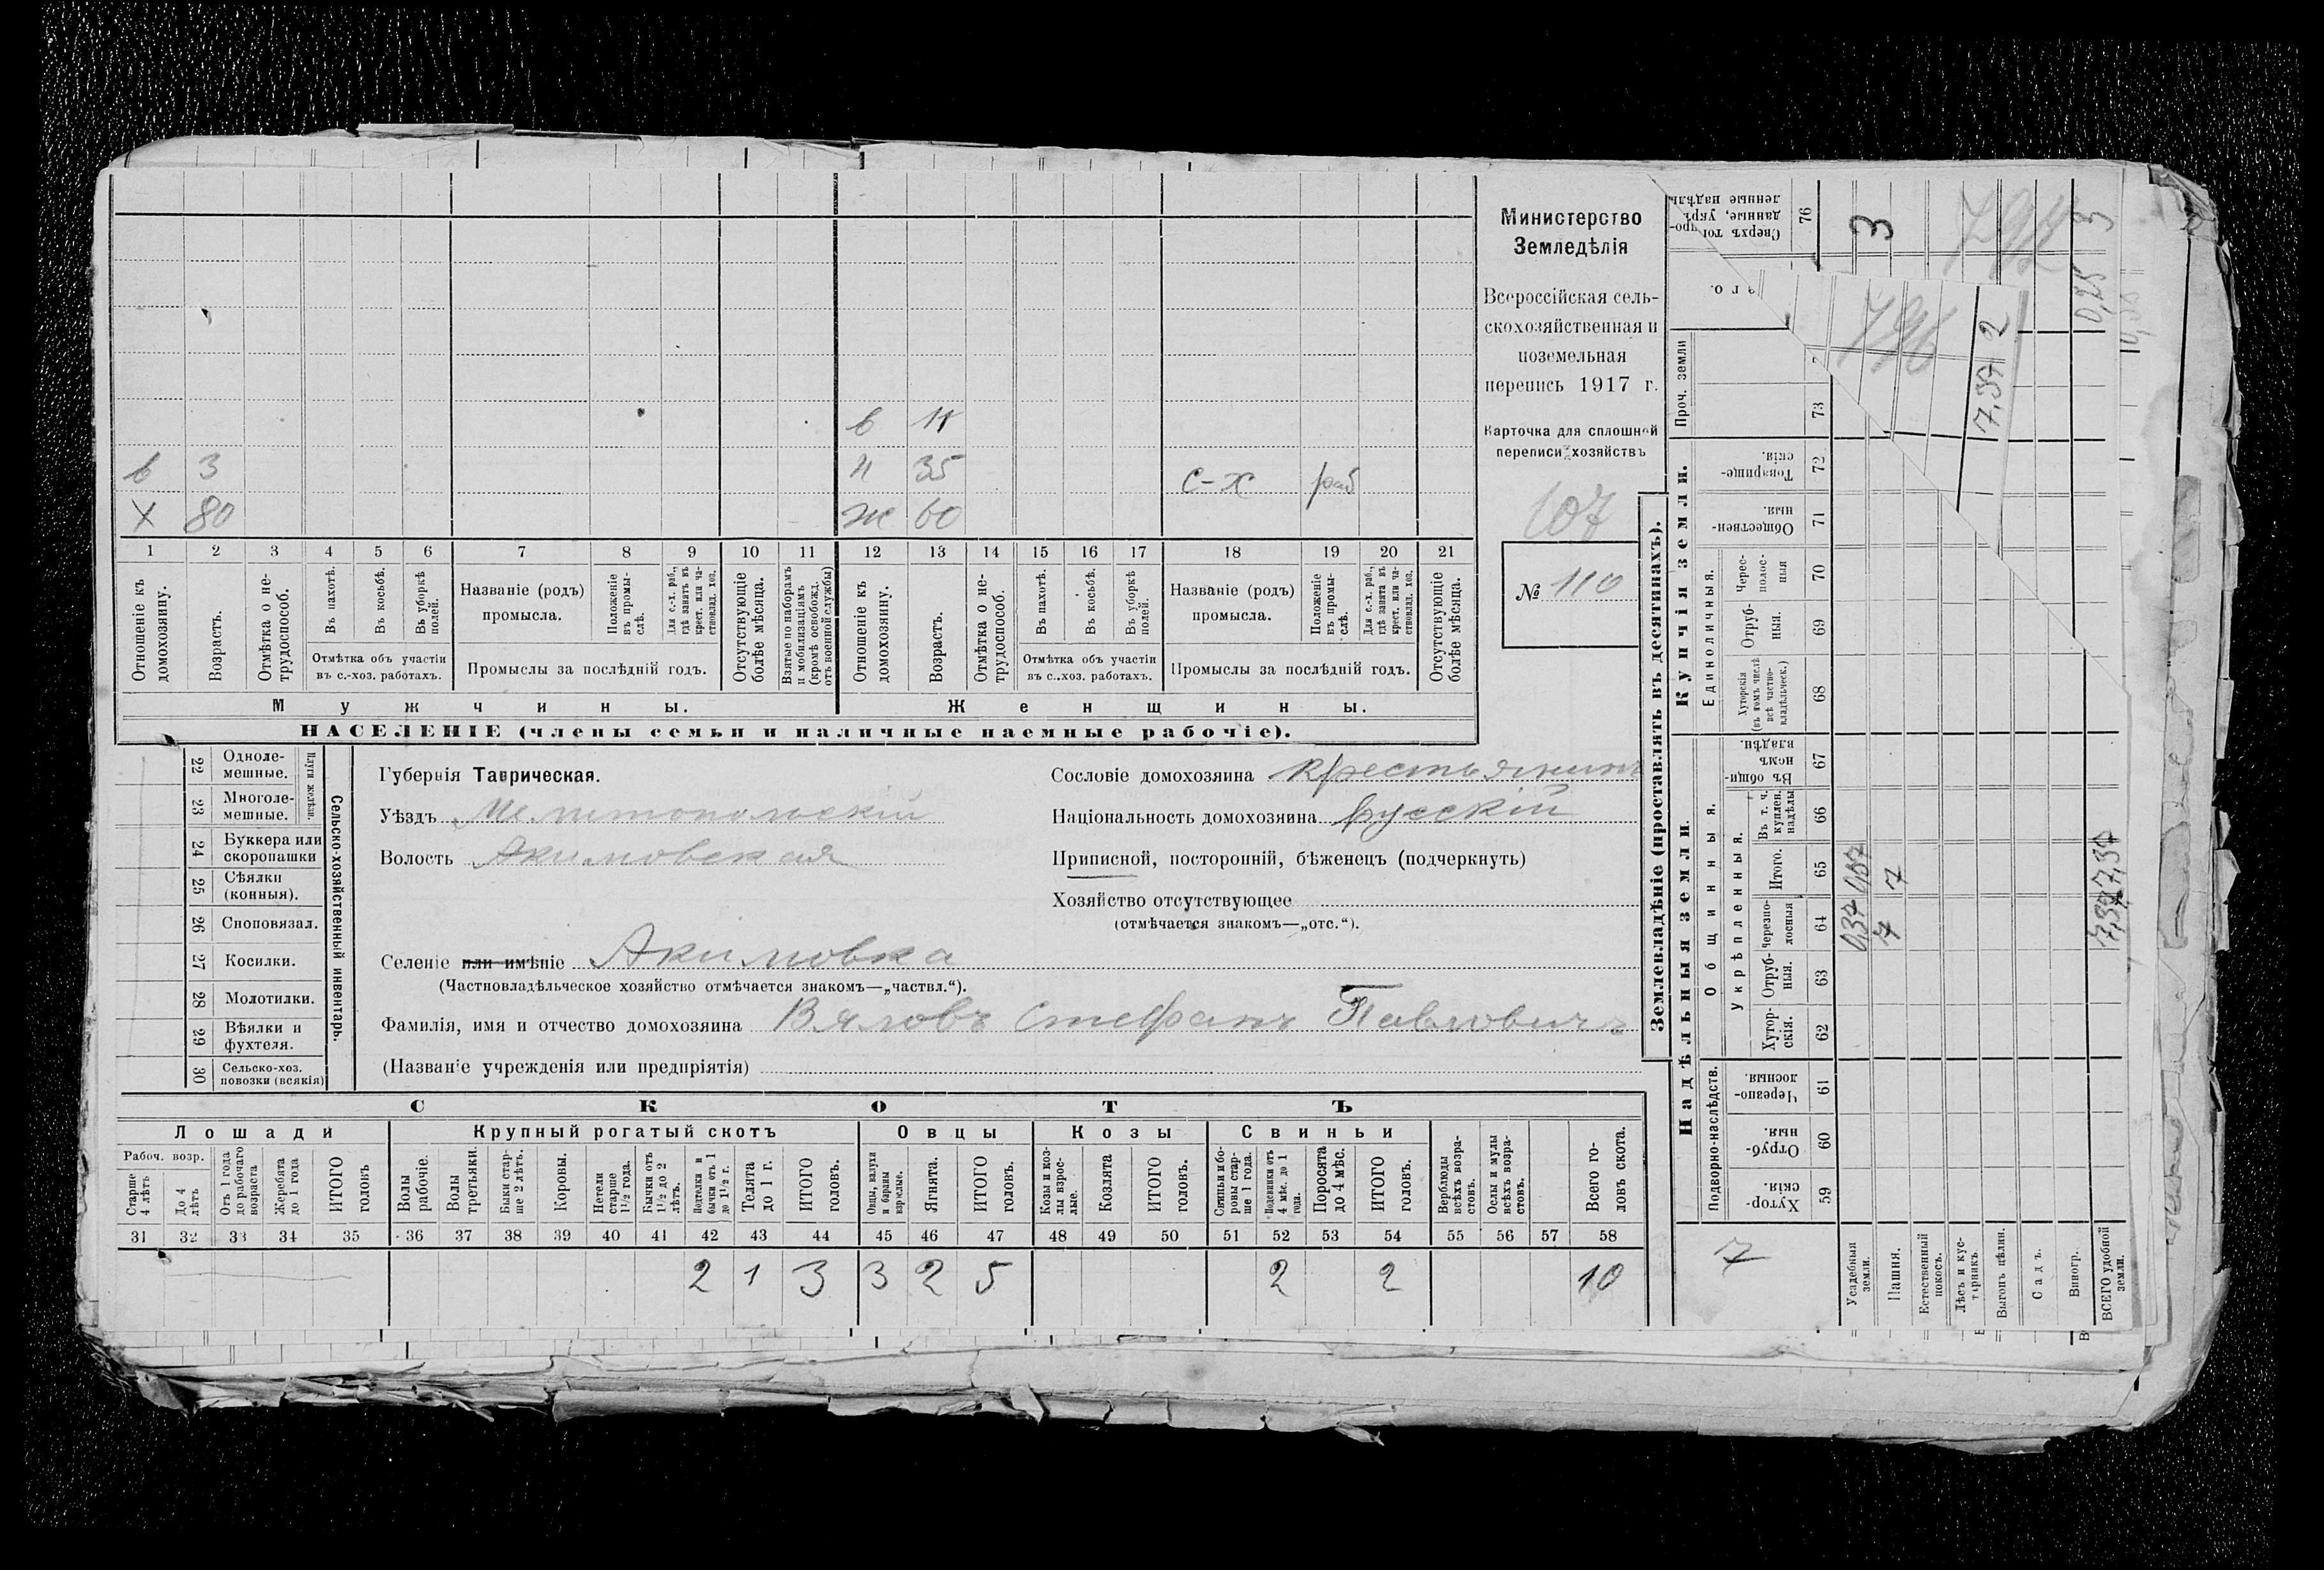 Министерство
Земледѣлія
Всероссійская сель-
скохозяйственная и
поземельная
перепись 1917 г.
Карточка для сплошной
переписи хозяйствъ
107
№ 110
в 11
в 3
н 35 С-Х раб
Х 80
ж 60
1 2 3 4 5 6 7 8 9 10 11 12 13 14 15 16 17 18 19 20 21
Отношеніе къ домохозяину.
Возрастъ.
Отмѣтка о не-трудоспособ.
Въ пахотѣ.
Въ косьбѣ.
Въ уборкѣ полей.
Отмѣтка объ участіи
въ с.-хоз. работахъ.
Названіе (родъ)
промысла.
Положеніе въ промы-слѣ.
Для с.-х. раб., гдѣ занятъ въ крест. или ча-стновлад. хоз.
Промыслы за послѣдній годъ.
Отсутствующіе болѣе мѣсяца.
Взятые по наборамъ и мобилизаціямъ (кромѣ освобожд. отъ военной службы)
Отношеніе къ домохозяину.
Возрастъ.
Отмѣтка о не-трудоспособ.
Въ пахотѣ.
Въ косьбѣ.
Въ уборкѣ полей.
Отмѣтка объ участіи
въ с..хоз. работахъ.
Названіе (родъ)
промысла.
Положеніе въ промы-слѣ.
Для с.-х. раб., гдѣ занята въ крест. или ча-стновлад. хоз.
Промыслы за послѣдній годъ.
Отсутствующіе болѣе мѣсяца.
Мужчины.
Женщины.
НАСЕЛЕНІЕ (члены семьи и наличные наемные рабочіе).
Сельско-хозяйственный инвентарь.
Плуги желѣзн.
22 Одноле-мешные.
23 Многоле-мешные.
24 Буккера или скоропашки
25 Сѣялки (конныя).
26 Сноповязал.
27 Косилки.
28 Молотилки.
29 Вѣялки и фухтеля.
30 Сельско-хоз. повозки (всякія)
Губернія Таврическая.
Уѣздъ Мелитопольскій
Волость Акимовская
Сословіе домохозяина крестьянинъ
Національность домохозяина русскій
Приписной, посторонній, бѣженецъ (подчеркнуть)
Хозяйство отсутствующее
(отмѣчается знакомъ—„отс.“).
Селеніе или имѣніе Акимовка
(Частновладѣльческое хозяйство отмѣчается знакомъ—„частвл.“).
Фамилія, имя и отчество домохозяина Вяловъ Стефанъ Павловичъ
(Названіе учрежденія или предпріятія)
СКОТЪ
Лошади
Крупный рогатый скотъ
Овцы
Козы
Свиньи
Рабоч. возр.
Старше 4 лѣтъ
До 4 лѣтъ
Отъ 1 года до рабочаго возраста
Жеребята до 1 года
ИТОГО головъ
Волы рабочіе.
Волы третьяки.
Быки стар-ше 2 лѣтъ.
Коровы.
Нетели старше 1½ года.
Бычки отъ 1½ до 2 лѣтъ.
Подтелки и бычки отъ 1 до 1½ г.
Телята до 1 г.
ИТОГО головъ.
Овцы, валухи и бараны взрослые.
Ягнята.
ИТОГО головъ.
Козы и коз-лы взрос-лые.
Козлята
ИТОГО головъ.
Свиньи и бо-ровы стар-ше 1 года.
Подсвинки отъ 4 мѣс. до 1 года.
Поросята до 4 мѣс.
ИТОГО головъ.
Верблюды всѣхъ возра-стовъ.
Ослы и мулы всѣхъ возра-стовъ.
Всего го-ловъ скота.
31 32 33 34 35 36 37 38 39 40 41 42 43 44 45 46 47 48 49 50 51 52 53 54 55 56 57 58
2 1 3 3 2 5 2 2 10
Землевладѣніе (проставлять въ десятинахъ).
Надѣльныя земли.
Купчія земли.
Проч. земли
Подворно-наслѣдств.
Общинныя.
Укрѣпленныя.
Единоличныя.
Хутор-скія. 59
Отруб-ныя. 60
Черезпо-лосныя 61
Хутор-скія. 62
Отруб-ныя. 63
Черезпо-лосныя 64
Итого. 65
Въ т. ч. куплен. надѣлы 66
Въ общин-номъ владѣн. 67
Хуторскія (въ томъ числѣ всѣ частно-владѣльческ.) 68
Отруб-ныя. 69
Черес-полос-ныя 70
Обществен-ныя. 71
Товарище-скія. 72
73
76
3
796
7,37 2
0,25 3
Усадебныя земли. 0,37 0,37
Пашня. 7 7
Естественный покосъ.
Лѣсъ и кус-тарникъ
Выгонъ цѣлин.
Садъ.
Виногр.
ВСЕГО удобной земли. 7,37 7,37
7